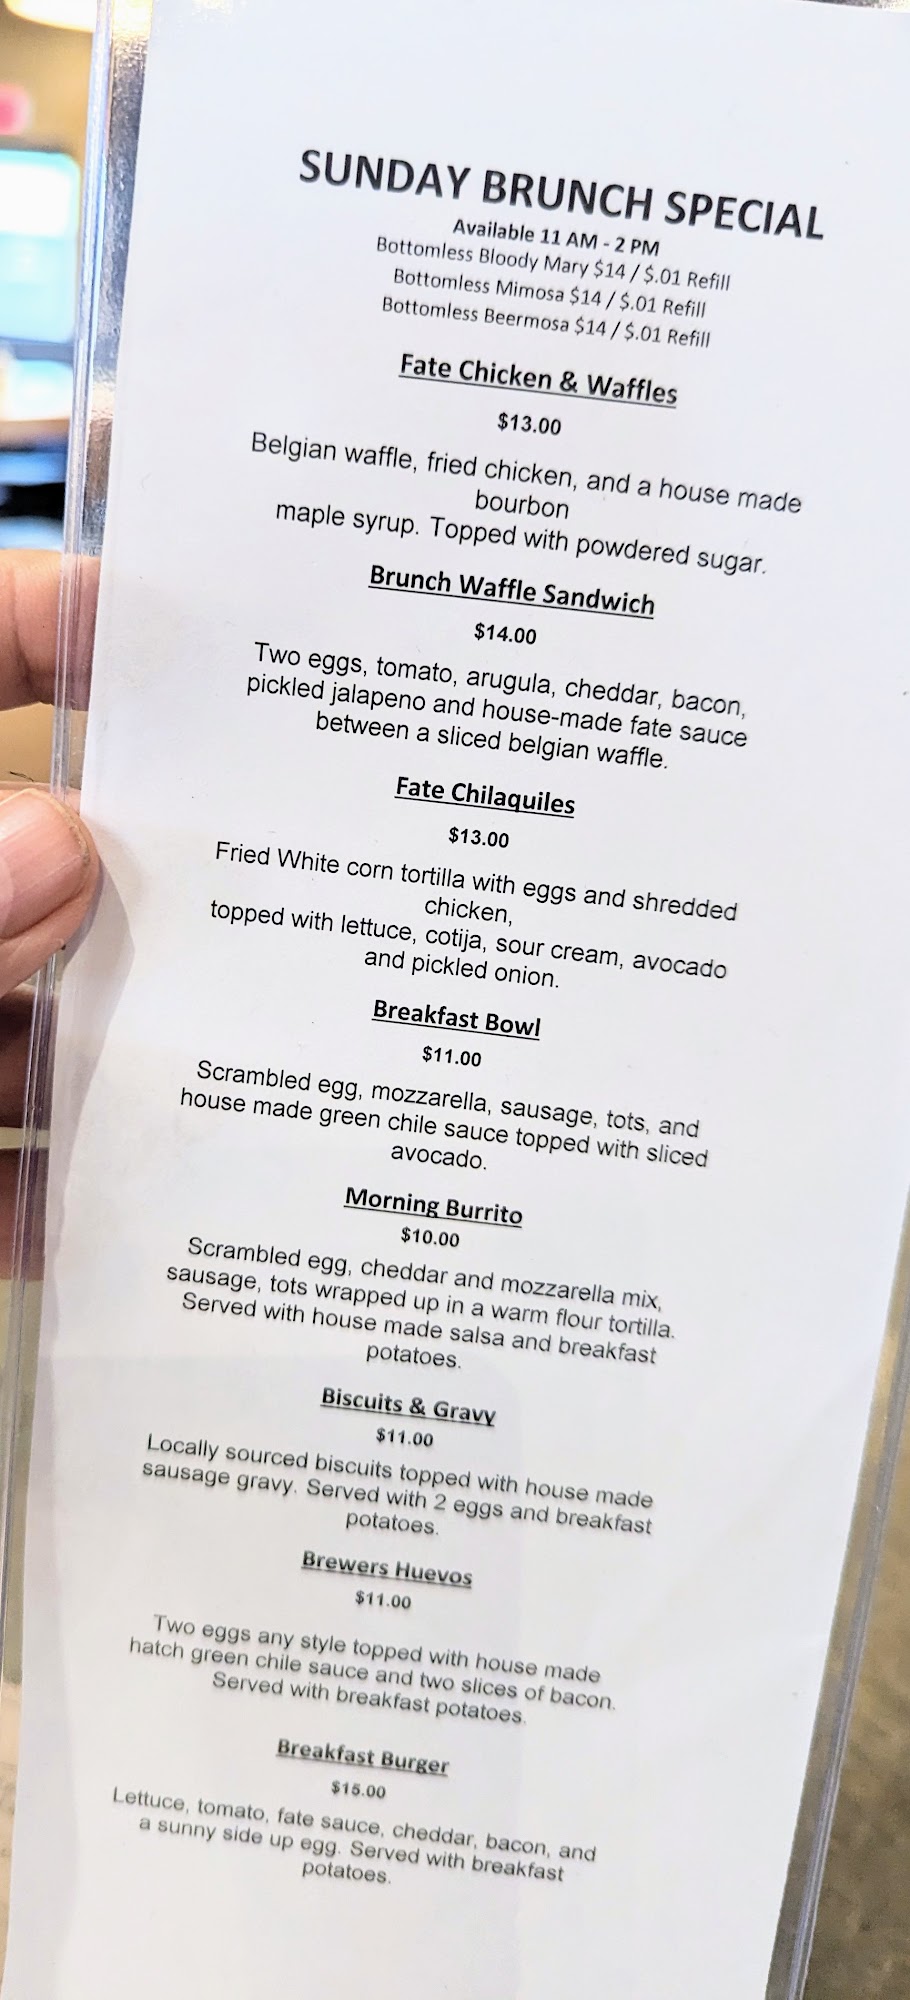 SUNDAY BRUNCH SPECIAL
Available 11 AM - 2 PM
Bottomless Bloody Mary $14 / $.01 Refill
Bottomless Mimosa $14 / $.01 Refill
Bottomless Beermosa $14 / $.01 Refill
Fate Chicken & Waffles
$13.00
Belgian waffle, fried chicken, and a house made
bourbon
maple syrup. Topped with powdered sugar.
Brunch Waffle Sandwich
$14.00
Two eggs, tomato, arugula, cheddar, bacon,
pickled jalapeno and house-made fate sauce
between a sliced belgian waffle.
Fate Chilaquiles
$13.00
Fried White corn tortilla with eggs and shredded
chicken,
topped with lettuce, cotija, sour cream, avocado
and pickled onion.
Breakfast Bowl
$11.00
Scrambled egg, mozzarella, sausage, tots, and
house made green chile sauce topped with sliced
avocado.
Morning Burrito
$10.00
Scrambled egg, cheddar and mozzarella mix,
sausage, tots wrapped up in a warm flour tortilla.
Served with house made salsa and breakfast
potatoes.
Biscuits & Gravy
$11.00
Locally sourced biscuits topped with house made
sausage gravy. Served with 2 eggs and breakfast
potatoes.
Brewers Huevos
$11.00
Two eggs any style topped with house made
hatch green chile sauce and two slices of bacon.
Served with breakfast potatoes.
Breakfast Burger
$15.00
Lettuce, tomato, fate sauce, cheddar, bacon, and
a sunny side up egg. Served with breakfast
potatoes.